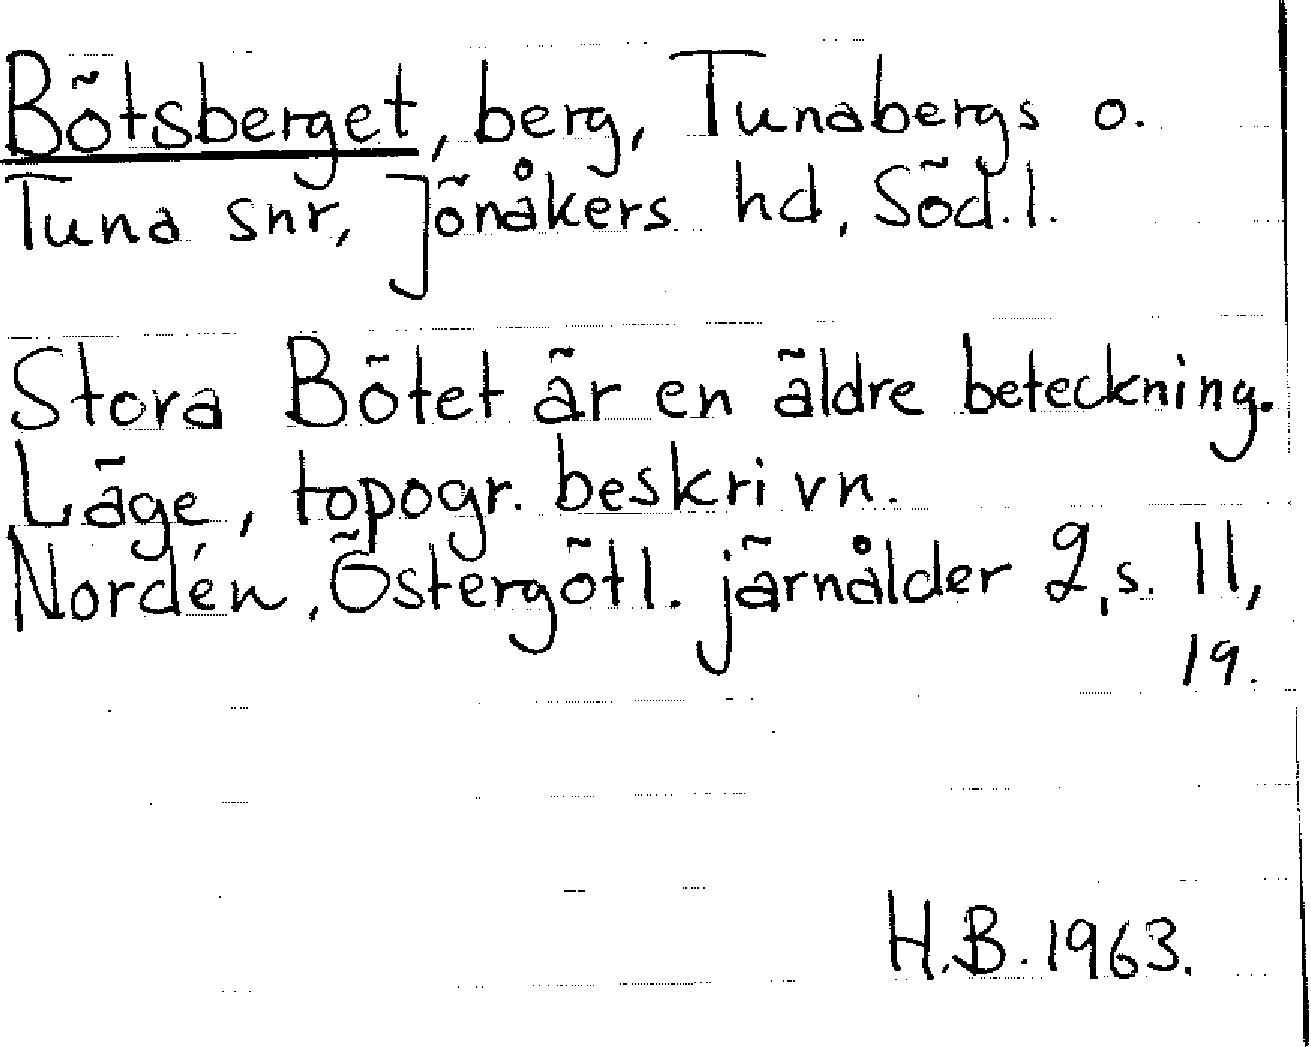 Bötsberget, berg, Tunabergs o.
Tuna snr, Jönåkers hd, Söd.l.
Stora Bötet är en äldre beteckning.
Läge, topogr. beskrivn.
Nordén, Östergötl. järnålder 2, s. 11,
19.
H.B. 1963.